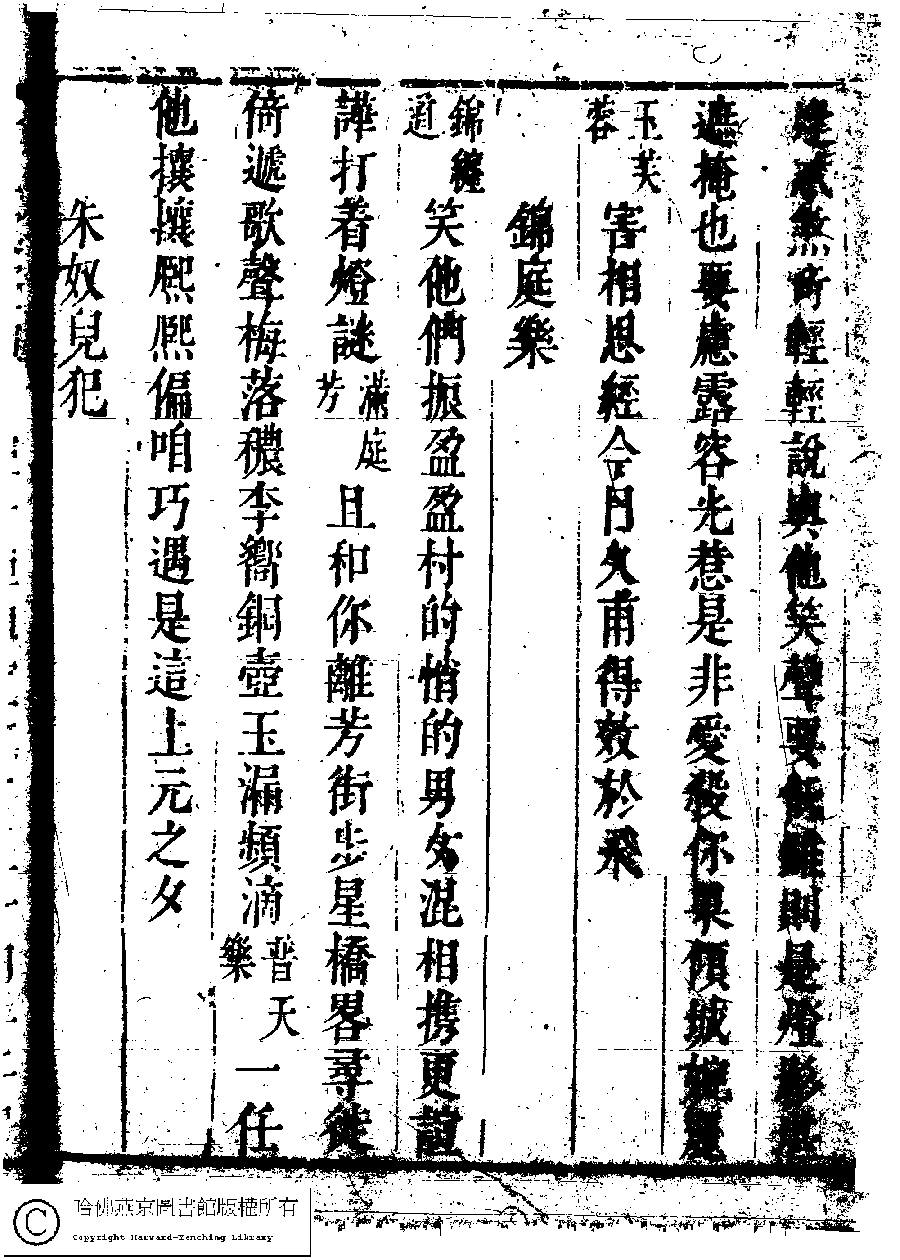 輕輕說與他笑聲要低雖則是燈影
遮掩也要慮露容光惹是非愛殺你果傾城婉麗
玉芙蓉害相思經今月久甫得效於飛
錦庭樂
錦纏道笑他們振盈盈村的悄的男女混相携更諠
譁打着燈謎滿庭芳且和你離芳街步星橋畧尋徙
倚遞歌聲梅落穠李嚮銅壺玉漏頻滴普天樂一任
他攘攘熈熈偏咱巧遇是這上元之夕
朱奴兒犯
哈佛燕京圖書館版權所有
Copyright Harvard-Yenching Library